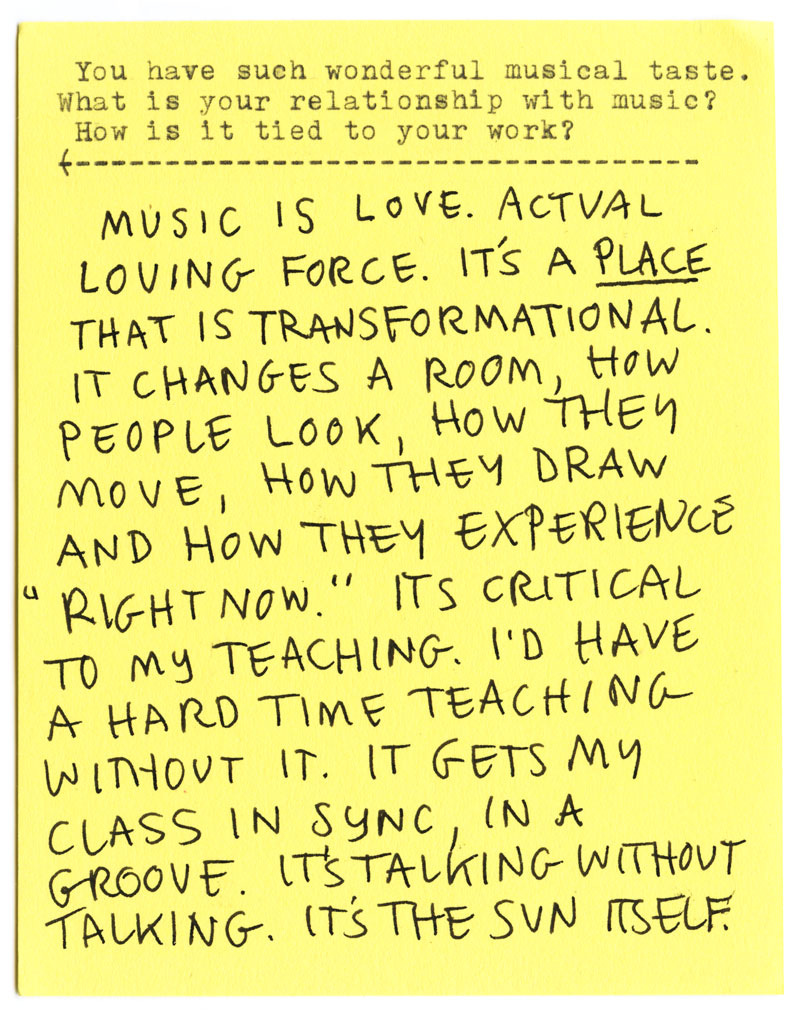 You have such wonderful musical taste.
What is your relationship with music?
How is it tied to your work?
MUSIC IS LOVE. ACTUAL
LOVING FORCE. IT'S A PLACE
THAT IS TRANSFORMATIONAL.
IT CHANGES A ROOM, HOW
PEOPLE LOOK, HOW THEY
MOVE, HOW THEY DRAW
AND HOW THEY EXPERIENCE
"RIGHT NOW." ITS CRITICAL
TO MY TEACHING. I'D HAVE
A HARD TIME TEACHING
WITHOUT IT. IT GETS MY
CLASS IN SYNC, IN A
GROOVE. IT'S TALKING WITHOUT
TALKING. IT'S THE SUN ITSELF.